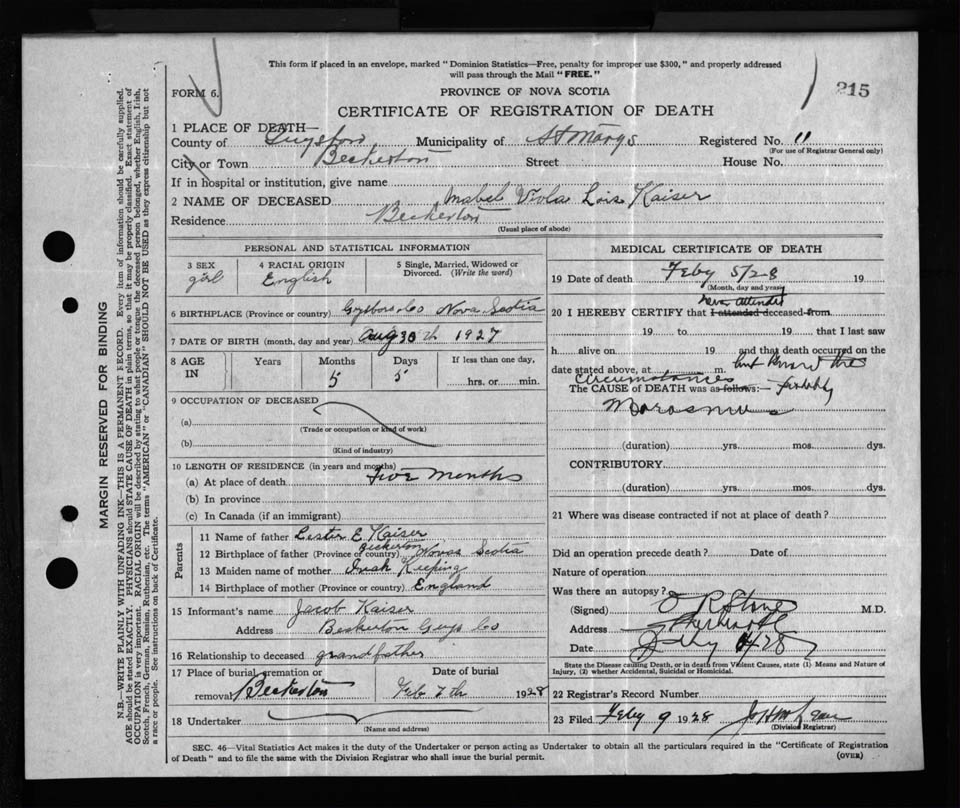 This form if placed in an envelope, marked "Dominion Statistics—Free, penalty for improper use $300," and properly addressed
will pass through the Mail "FREE."
FORM 6.
PROVINCE OF NOVA SCOTIA
215
CERTIFICATE OF REGISTRATION OF DEATH
1 PLACE OF DEATH—
County of Guysboro Municipality of St Marys Registered No. 11
(For use of Registrar General only)
City or Town Beckerton Street House No.
If in hospital or institution, give name
2 NAME OF DECEASED Mabel Viola Lois Kaiser
Residence Beckerton
(Usual place of abode)
PERSONAL AND STATISTICAL INFORMATION
3 SEX girl
4 RACIAL ORIGIN English
5 Single, Married, Widowed or
Divorced. (Write the word)
6 BIRTHPLACE (Province or country) Gysboro Co Nova Scotia
7 DATE OF BIRTH (month, day and year) Aug 30th 1927
8 AGE IN Years Months 5 Days 5 If less than one day,
hrs. or min.
9 OCCUPATION OF DECEASED
(a)
(Trade or occupation or kind of work)
(b)
(Kind of industry)
10 LENGTH OF RESIDENCE (in years and months)
(a) At place of death Five Months
(b) In province
(c) In Canada (if an immigrant)
Parents
11 Name of father Lester E Kaiser
12 Birthplace of father (Province or country) Beckerton Novas Scotia
13 Maiden name of mother Keeping
14 Birthplace of mother (Province or country) England
15 Informant's name Jacob Kaiser
Address Beskerton Guys Co
16 Relationship to deceased grandfather
17 Place of burial, cremation or
removal Beckerton
Date of burial
Feb 7th 1928
18 Undertaker
(Name and address)
MEDICAL CERTIFICATE OF DEATH
19 Date of death Feby 5/28 19
(Month, day and year)
never attended
20 I HEREBY CERTIFY that I attended deceased from
19 to 19 that I last saw
h alive on 19 and that death occurred on the
date stated above, at m. but the
circumstances
The CAUSE of DEATH was as follows:— probably
Marasmus
(duration) yrs. mos. dys.
CONTRIBUTORY
(duration) yrs. mos. dys.
21 Where was disease contracted if not at place of death?
Did an operation precede death? Date of
Nature of operation
Was there an autopsy?
(Signed) M.D.
Address
Date
State the Disease causing Death, or in death from Violent Causes, state (1) Means and Nature of
Injury, (2) whether Accidental, Suicidal or Homicidal.
22 Registrar's Record Number
23 Filed Feby 9 1928
(Division Registrar)
SEC. 46—Vital Statistics Act makes it the duty of the Undertaker or person acting as Undertaker to obtain all the particulars required in the "Certificate of Registration
of Death" and to file the same with the Division Registrar who shall issue the burial permit.
(OVER)
MARGIN RESERVED FOR BINDING
N.B.—WRITE PLAINLY WITH UNFADING INK—THIS IS A PERMANENT RECORD. Every item of information should be carefully supplied.
AGE should be stated EXACTLY. PHYSICIANS should STATE CAUSE OF DEATH in plain terms, so that it may be properly classified. Exact statement of
OCCUPATION is very important. RACIAL ORIGIN will be described by stating to what people or tongue the deceased person belonged, whether English, Irish,
Scotch, French, German, Russian, Ruthenian, etc. The terms "AMERICAN" or "CANADIAN" SHOULD NOT BE USED as they express citizenship but not
a race or people. See instructions on back of Certificate.